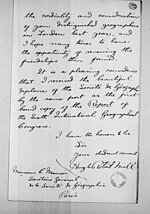 the cordiality and consideration
of your distinguished geographers
in London last year, and
I hope many times to have
the opportunity of renewing the
friendships then formed.
It is a pleasing coincidence
that I received the beautiful
diploma of the Société de Géographie
by the same post as the first
bound copy of the Report of
the Sixth International Geographical
Congress.
I have the honour to be
Sir
Your obedient servant
Hugh Robert Mill
Monsieur C. Maunoir
Secrétaire Général
de la Société de Géographie
Paris